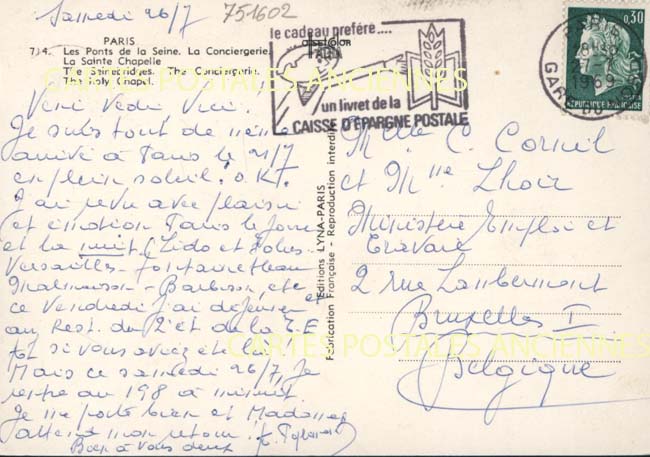 Samedi 26/7
751602
PARIS
Les Ponts de la Seine. La Conciergerie.
La Sainte Chapelle
The Seinebridges. The Conciergerie.
The Holy Chapel.
le cadeau préféré....
un livret de la
CAISSE D'ÉPARGNE POSTALE
PARIS
GARE DU
1969
0,30
REPUBLIQUE FRANÇAISE
Veni Vedi Vici.
Je suis tout de même
arrivé à Paris le 21/7
en plein soleil. O.K!
J'ai revu avec plaisir
(et émotion Paris le jour
et la nuit (Lido et Folies.
Versailles - Fontainebleau
Malmaison - Barbizon, etc
ce Vendredi j'ai déjeuner
au Rest. du 2e et de la T.E
si vous aviez été là
Mais ce samedi 26/7, je
rentre au 198 à minuit.
Je me porte bien et Madame
attend mon retour.
Bien à vous deux
Editions LYNA-PARIS
Fabrication Française - Reproduction interdite
Mlle C. Cornil
et Mme Lhoir
Ministère Emploi et
Travail
2 rue Lambermont
Bruxelles I
Belgique
CARTES POSTALES ANCIENNES
CARTES POSTALES ANCIENNES